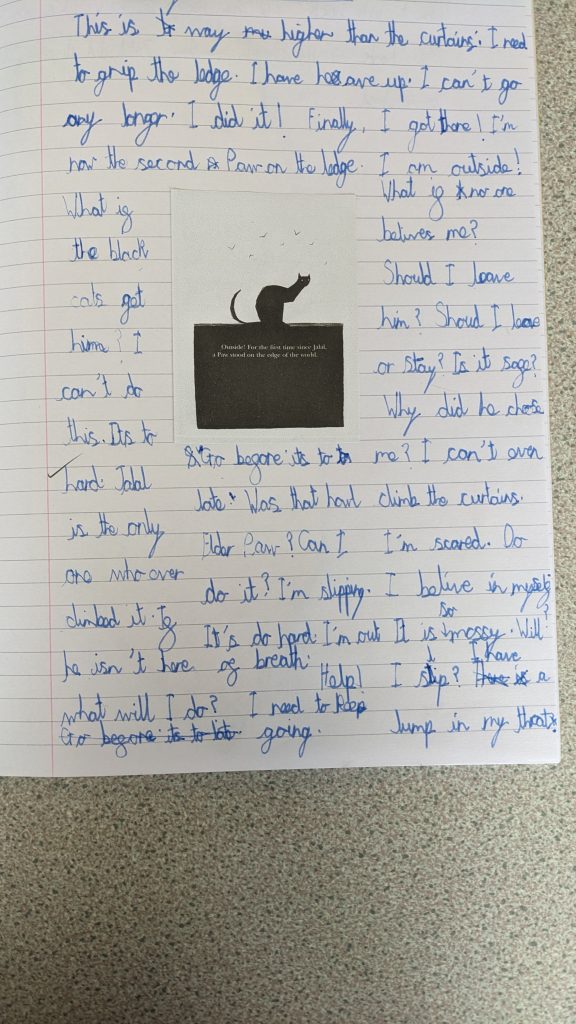 This is way higher than the curtains. I need
to grip the ledge. I have heave up. I can't go
any longr. I did it! Finally, I got there! I'm
now the second Paw on the ledge. I am outside!
What if
the black
cats got
him? I
can't do
this. Its to
hard. Jalal
is the only
one who ever
climbed it. If
he isn't here
what will I do?
Go before its to late
Outside! For the first time since Jalal,
a Paw stood on the edge of the world.
Go before its to
late. Was that
Elder Paw? Can I
do it? I'm slipping.
It's do hard. I'm out
of breath. Help!
I need to keep
going.
What if no one
belives me?
Should I leave
him? Shoud I leave
or stay? Is it safe?
Why did he chose
me? I can't even
climb the curtains.
I'm scared. Do
I belive in myself?
It is so mossy. Will
I slip? I have a
lump in my throat.